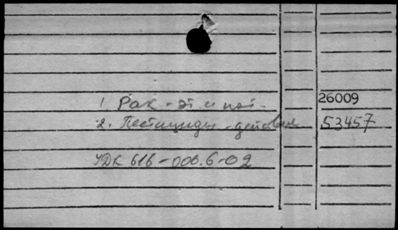 1. Рак - эт. и пат. 26009
2. Пестициды - действие 53457
УДК 616-006.6-02